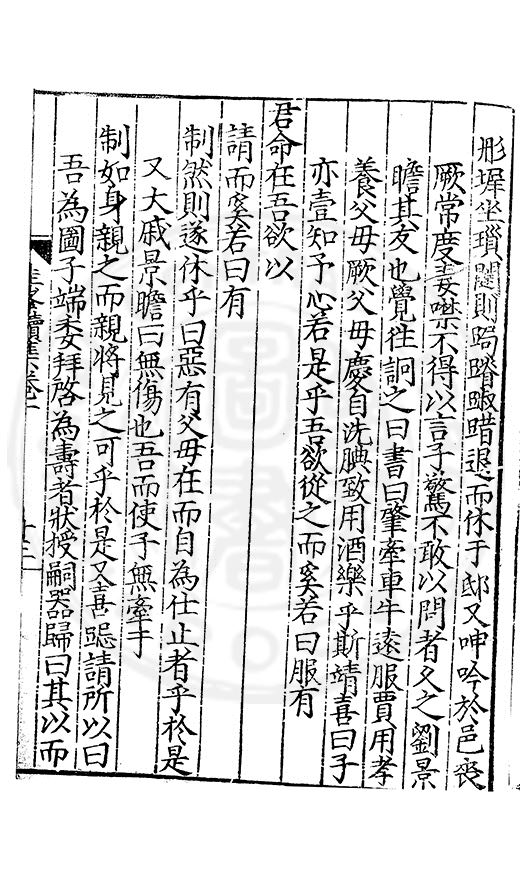 彤墀坐瑣闥則跼蹐踧踖退而休于邸又呻吟於邑喪
厥常度妻噤不得以言子驚不敢以問者久之劉景
瞻其友也覺徃詗之曰書曰肇牽車牛遠服賈用孝
養父母厥父母慶自洗腆致用酒樂乎斯靖喜曰子
亦壹知予心若是乎吾欲從之而奚若曰服有
君命在吾欲以
請而奚若曰有
制然則遂休乎曰惡有父母在而自為仕止者乎於是
又大戚景瞻曰無傷也吾而使子無牽于
制如身親之而親將見之可乎於是又喜
請所以曰
吾為圖子端委拜啓為壽者狀授嗣器歸曰其以而